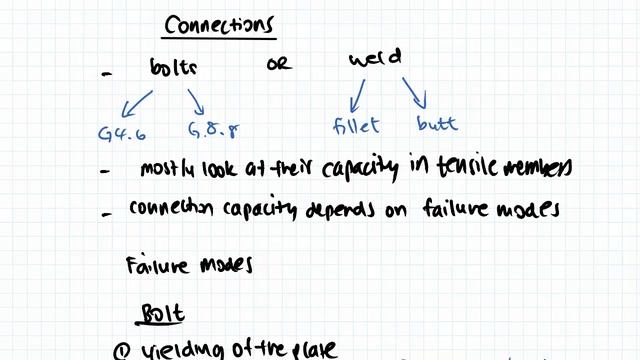 Connections
- bolts OR weld
G4.6 G.8.8 fillet butt
- mostly look at their capacity in tensile members
- connection capacity depends on failure modes
Failure modes
Bolt
① yielding of the plate